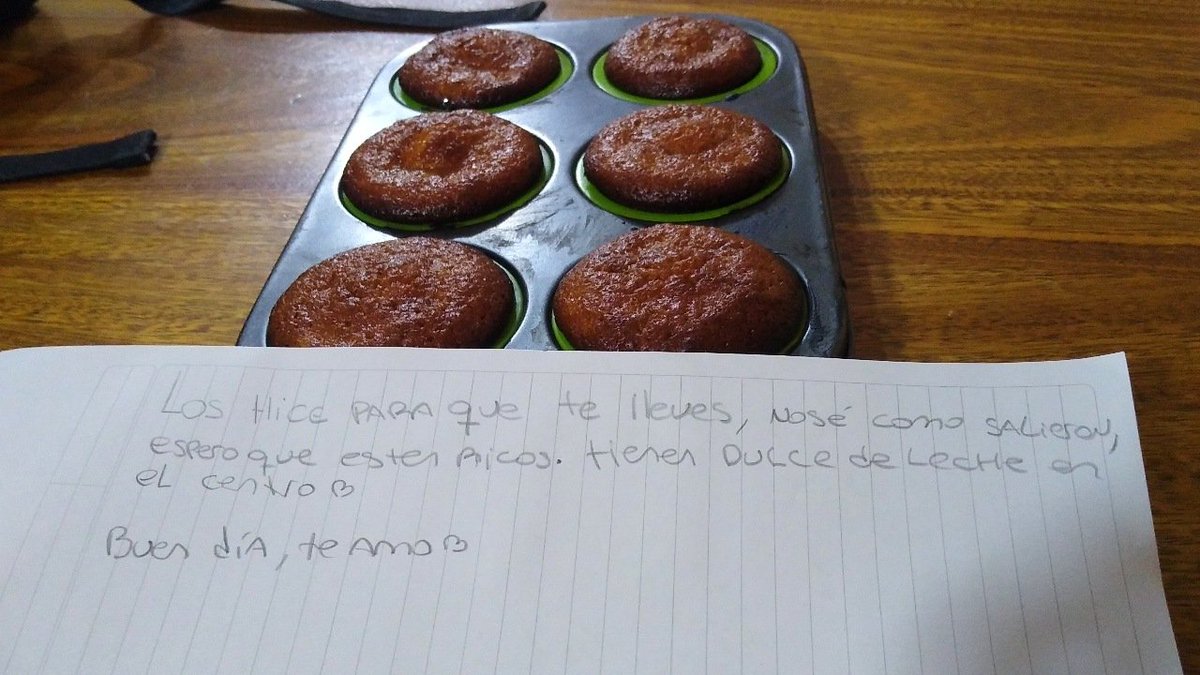 Los Hice PARA que te lleves, NOSÉ como SALIERON,
espero que esten Ricos. tienen DULCE de LecHe en
eL centro
Buen día, te Amo